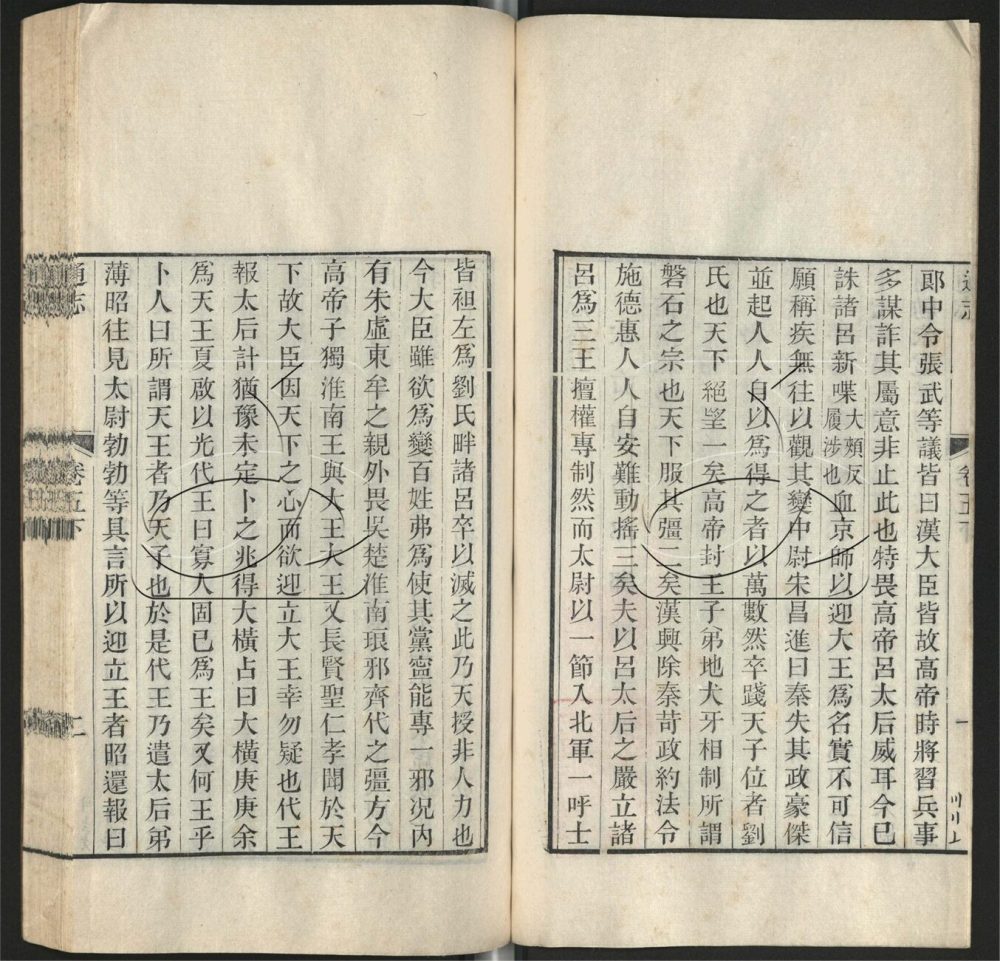 通志
卷五下
一
郎中令張武等議皆曰漢大臣皆故高帝時將習兵事
多謀詐其屬意非止此也特畏高帝呂太后威耳今已
誅諸呂新喋大頰反履涉也血京師以迎大王爲名實不可信
願稱疾無往以觀其變中尉宋昌進曰秦失其政豪傑
並起人人自以爲得之者以萬數然卒踐天子位者劉
氏也天下絕望一矣高帝封王子弟地犬牙相制所謂
磐石之宗也天下服其彊二矣漢興除秦苛政約法令
施德惠人人自安難動搖三矣夫以呂太后之嚴立諸
呂爲三王擅權專制然而太尉以一節入北軍一呼士
皆袒左爲劉氏畔諸呂卒以滅之此乃天授非人力也
今大臣雖欲爲變百姓弗爲使其黨寍能專一邪況內
有朱虛東牟之親外畏吳楚淮南琅邪齊代之彊方今
高帝子獨淮南王與大王大王又長賢聖仁孝聞於天
下故大臣因天下之心而欲迎立大王幸勿疑也代王
報太后計猶豫未定卜之兆得大橫占曰大橫庚庚余
爲天王夏啟以光代王曰寡人固已爲王矣又何王乎
卜人曰所謂天王者乃天子也於是代王乃遣太后弟
薄昭往見太尉勃勃等具言所以迎立王者昭還報曰
通志
卷五下